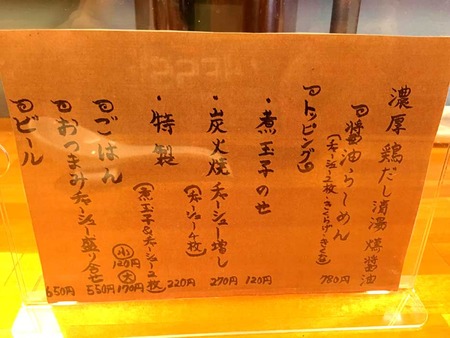 濃厚鶏だし清湯 燻醤油
醤油らーめん
(チャーシュー2枚・きくらげ・きくな)
780円
トッピング
・煮玉子のせ
120円
・炭火焼チャーシュー増し
(チャーシュー4枚)
270円
・特製
(煮玉子&チャーシュー2枚)
220円
ごはん
小 120円
大 170円
おつまみチャーシュー盛り合せ
550円
ビール
650円